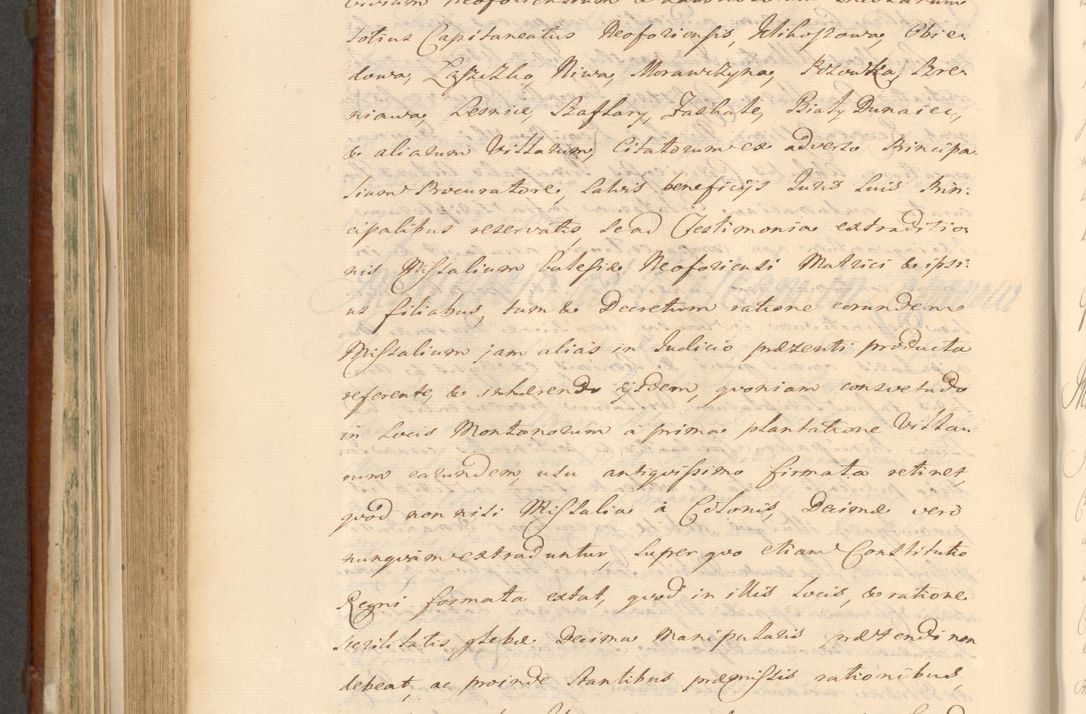 totius Capitaneatus Neoforiensis, Klikoszowa, Obie-
dowa, Łęszczko, Niwa, Morawczyna, Szre-
niawa, Lesnice, Szaflary, Zaskale, Biały Dunaiec,
& aliarum Villarum, Citatorum ex adverso Principa-
lium Procuratore, salvis beneficijs Juris suis Prin-
cipalibus reservatis, se ad Testimonia extraditio-
nis Missalium Ecclesiæ Neoforiensi Matrici & ipsi-
us filiabus, tum & Decretum ratione eorundem
Missalium jam alias in Judicio præzenti producta
referente, & inhærendo ijsdem, quoniam consvetudo
in Locis Montanorum à prima plantatione Villa-
rum earundem, usu antiquissimo firmata retinet,
quod non nisi Missalia à Colonis, Decimæ vero
nunquam extraduntur, super quo etiam Constitutio
Regni formata extat, quod in illis Locis, & ratione
sterilitatis glebæ Decima Manipularis prætendi non
debeat, ac proinde stantibus præmissis rationibus,